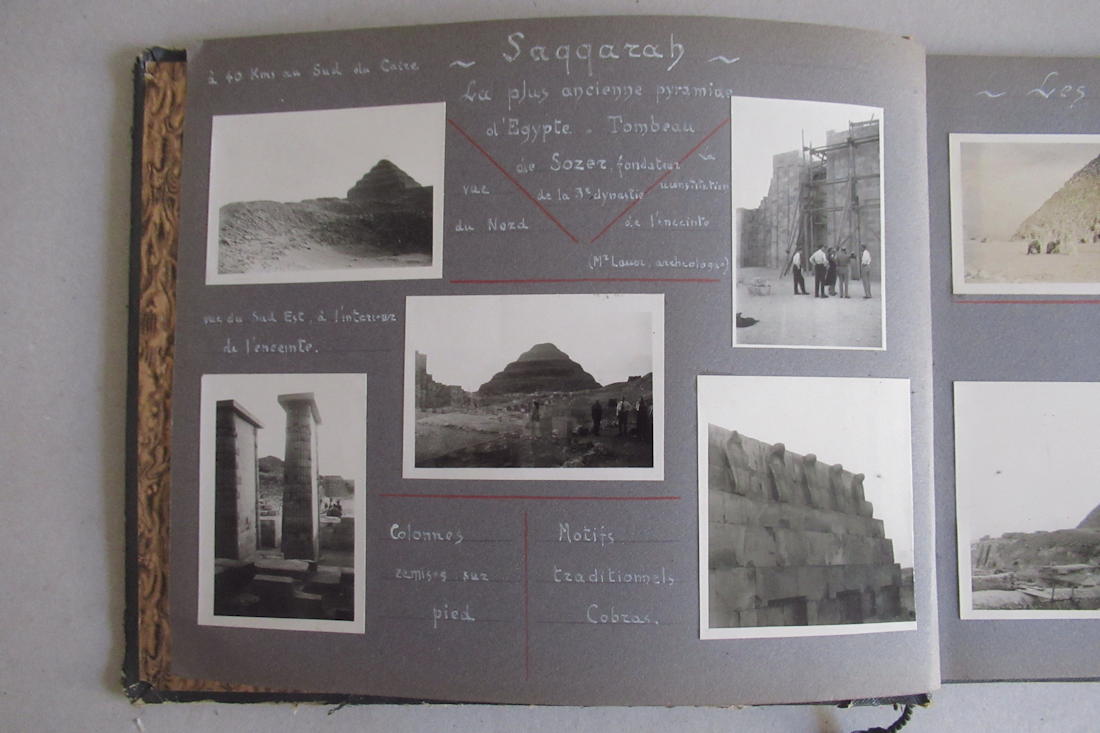 ~ Saqqarah ~
à 40 Kms au Sud du Caire
La plus ancienne pyramide
d'Egypte. Tombeau
de Sozer, fondateur
de la 3e dynastie
vue
du Nord
La
reconstitution
de l'enceinte
(Mr Lauer, archéologue)
vue du Sud Est, à l'intérieur
de l'enceinte.
Colonnes
remises sur
pied
Motifs
traditionnels
Cobras.
~ Les